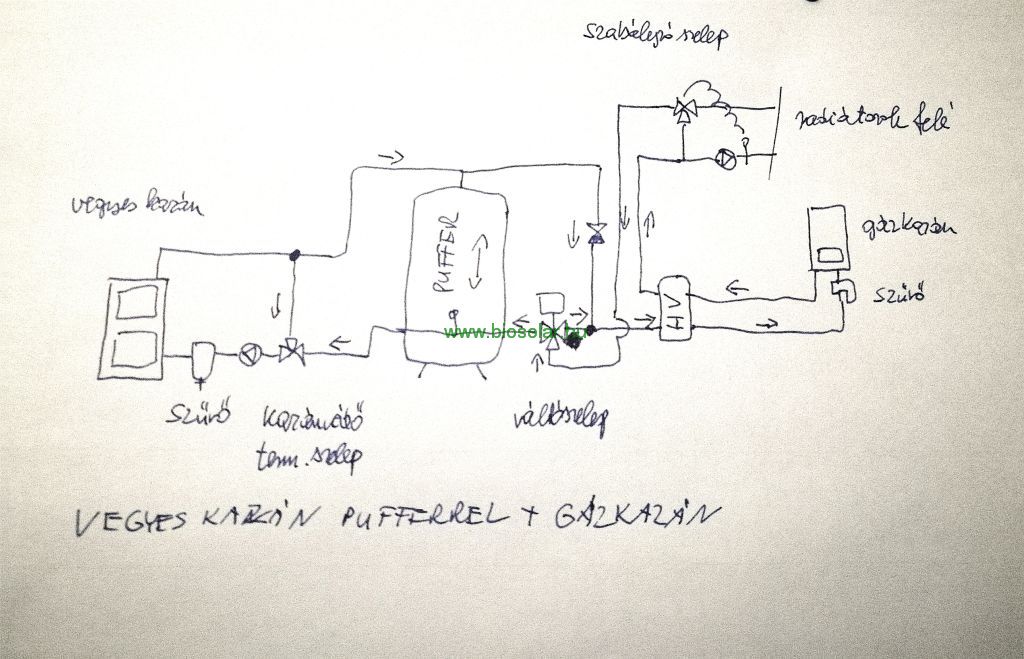 szabályzó szelep
radiátorok felé
vegyes kazán
gázkazán
PUFFER
szűrő
www.biosolar.hu
HV
szűrő
kazánvédő
term. szelep
váltószelep
VEGYES KAZÁN PUFFERREL + GÁZKAZÁN